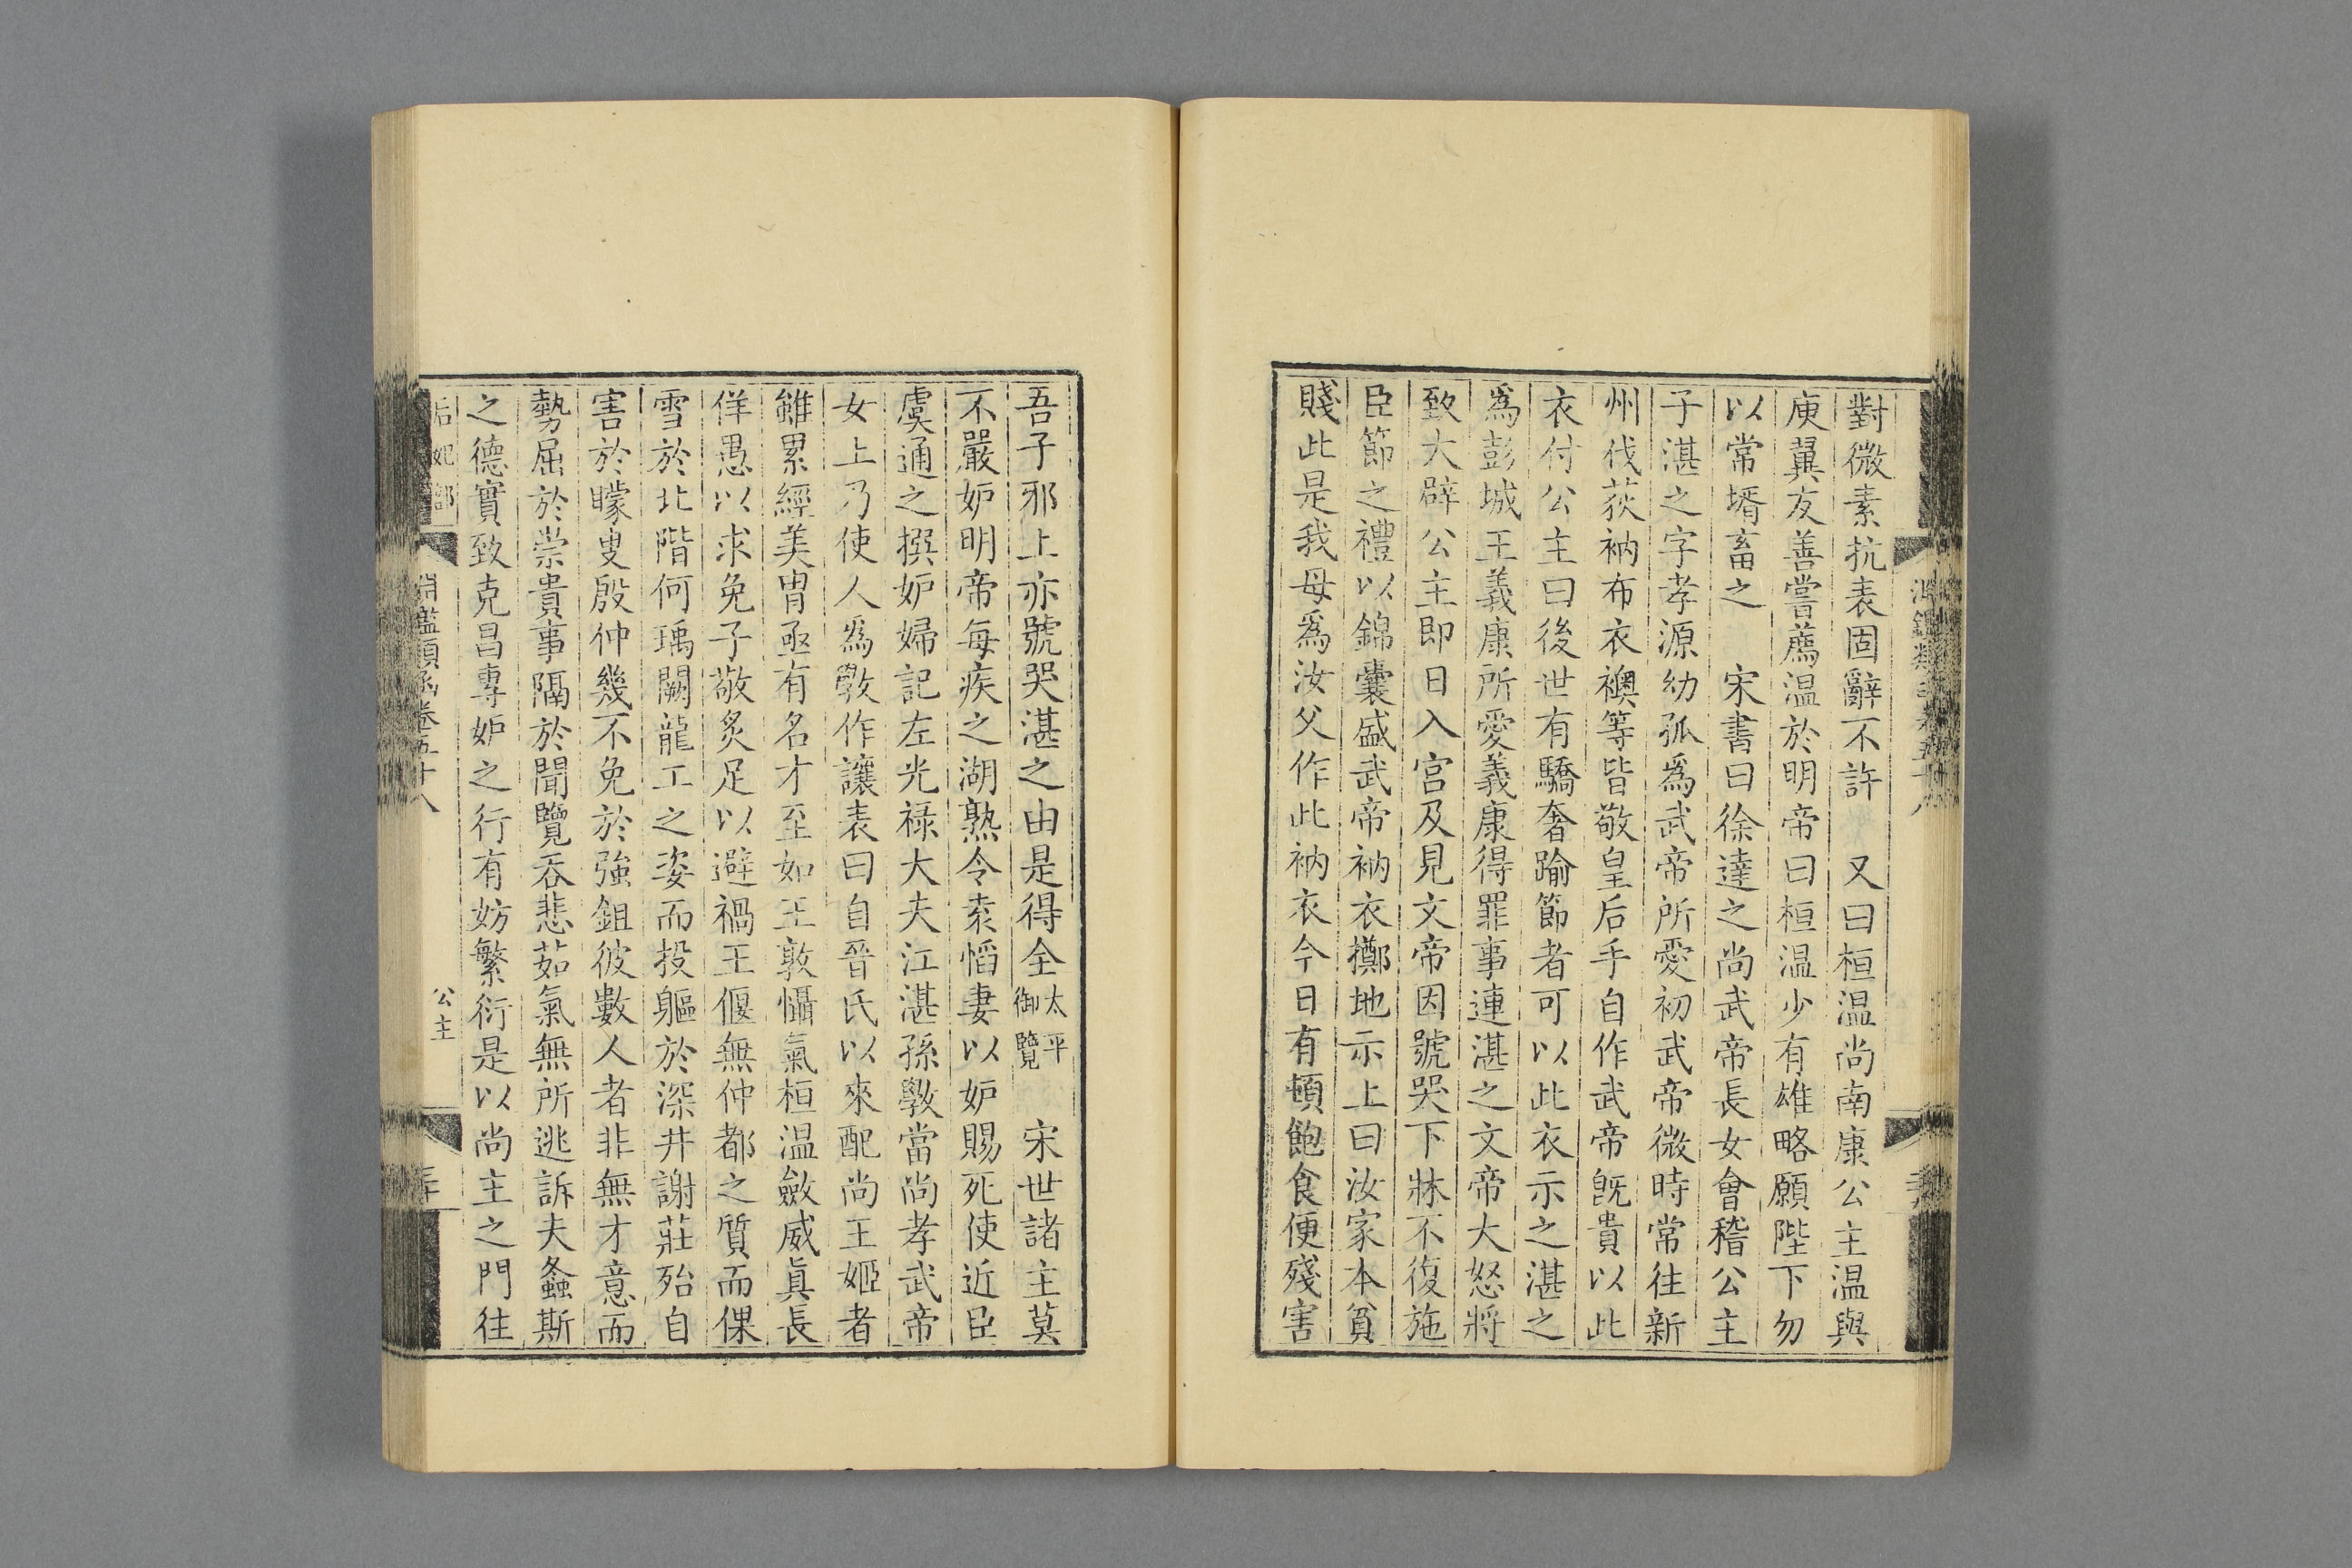 對微素抗表固辭不許　又曰桓温尚南康公主温與
庾翼友善嘗薦温於明帝曰桓温少有雄略願陛下勿
以常壻畜之　宋書曰徐達之尚武帝長女會稽公主
子湛之字孝源幼孤爲武帝所愛初武帝微時常往新
州伐荻衲布衣襖等皆敬皇后手自作武帝旣貴以此
衣付公主曰後世有驕奢踰節者可以此衣示之湛之
爲彭城王義康所愛義康得罪事連湛之文帝大怒將
致大辟公主即日入宫及見文帝因號哭下牀不復施
臣節之禮以錦囊盛武帝衲衣擲地示上曰汝家本貧
賤此是我母爲汝父作此衲衣今日有頓飽食便殘害
吾子邪上亦號哭湛之由是得全太平御覽　宋世諸主莫
不嚴妒明帝每疾之湖熟令袁慆妻以妒賜死使近臣
虞通之撰妒婦記左光祿大夫江湛孫斆當尚孝武帝
女上乃使人爲斆作讓表曰自晉氏以來配尚王姬者
雖累經美胄亟有名才至如王敦懾氣桓温斂威眞長
佯愚以求免子敬炙足以避禍王偃無仲都之質而倮
雪於北階何瑀闕龍工之姿而投軀於深井謝莊殆自
害於矇叟殷仲幾不免於強鉏彼數人者非無才意而
勢屈於崇貴事隔於聞覽吞悲茹氣無所逃訴夫螽斯
之德實致克昌專妒之行有妨繁衍是以尚主之門往
后妃部
鑑類函卷五十八
公主